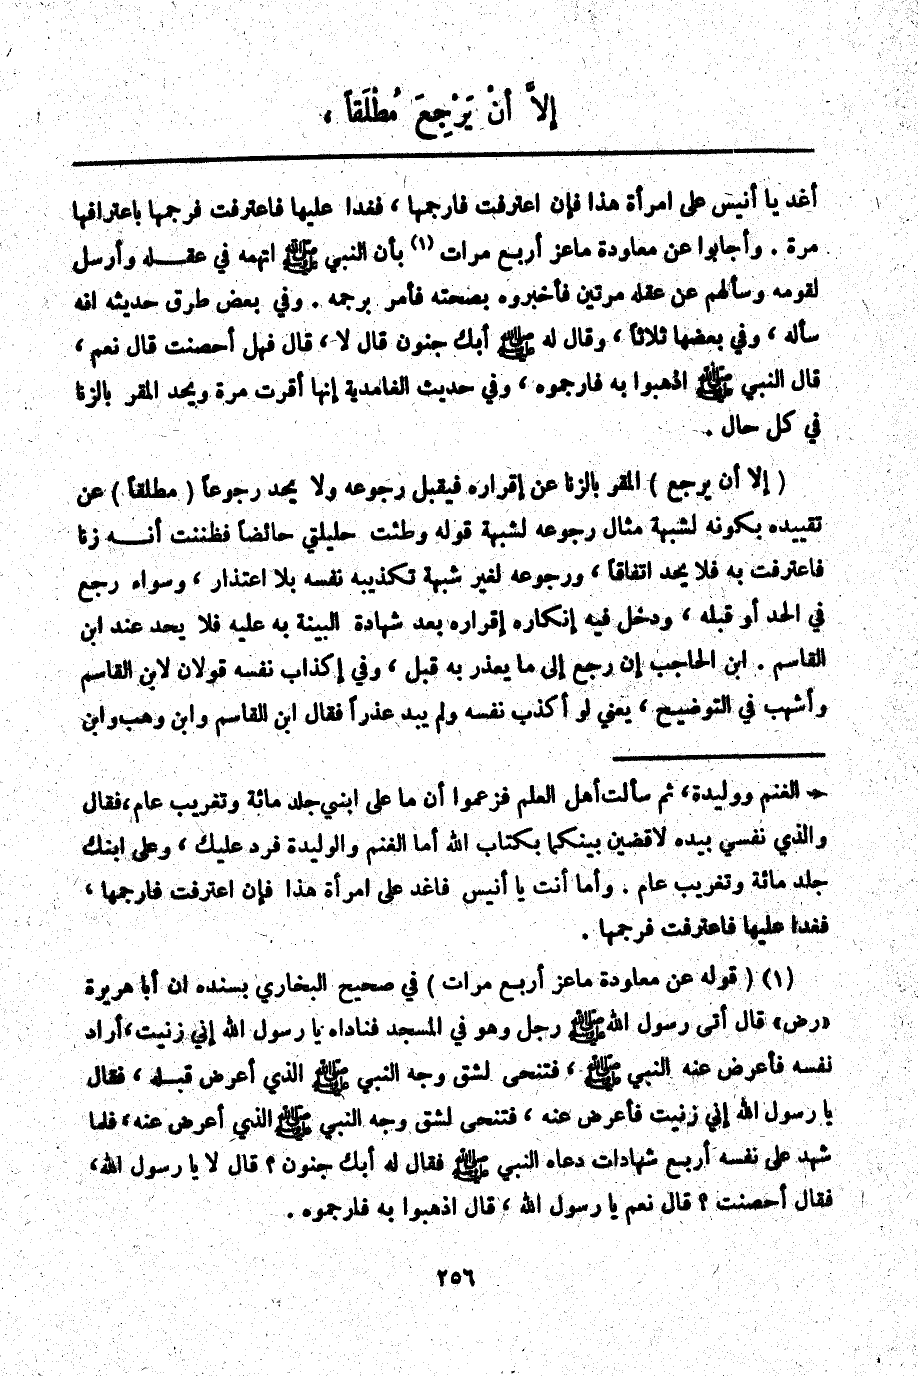 إِلاَّ أَنْ يَرْجِعَ مُطْلَقاً ،
أغد يا أنيس على امرأة هذا فإن اعترفت فارجمها ، فغدا عليها فاعترفت فرجمها باعترافها
مرة . وأجابوا عن معاودة ماعز أربع مرات (١) بأن النبي ﷺ اتهمه في عقله وأرسل
لقومه وسألهم عن عقله مرتين فأخبروه بصحته فأمر برجمه . وفي بعض طرق حديثه انه
سأله ، وفي بعضها ثلاثاً ، وقال له ﷺ أبك جنون قال لا ، قال فهل أحصنت قال نعم ،
قال النبي ﷺ اذهبوا به فارجموه ، وفي حديث الغامدية إنها أقرت مرة ويحد المقر بالزنا
في كل حال .
( إلا أن يرجع ) المقر بالزنا عن إقراره فيقبل رجوعه ولا يحد رجوعاً ( مطلقاً ) عن
تقييده بكونه لشبهة مثال رجوعه لشبهة قوله وطئت حليلتي حائضاً فظننت أنه زنا
فاعترفت به فلا يحد اتفاقاً ، ورجوعه لغير شبهة تكذيبه نفسه بلا اعتذار ، وسواء رجع
في الحد أو قبله ، ودخل فيه إنكاره إقراره بعد شهادة البينة به عليه فلا يحد عند ابن
القاسم . ابن الحاجب إن رجع إلى ما يعذر به قبل ، وفي إكذاب نفسه قولان لابن القاسم
وأشهب في التوضيح ، يعني لو أكذب نفسه ولم يبد عذراً فقال ابن القاسم وابن وهب وابن
← الغنم ووليدة، ثم سألت أهل العلم فزعموا أن ما على ابني جلد مائة وتغريب عام، فقال
والذي نفسي بيده لاقضين بينكما بكتاب الله أما الغنم والوليدة فرد عليك ، وعلى ابنك
جلد مائة وتغريب عام . وأما أنت يا أنيس فاغد على امرأة هذا فإن اعترفت فارجمها ،
فغدا عليها فاعترفت فرجمها .
(١) ( قوله عن معاودة ماعز أربع مرات ) في صحيح البخاري بسنده ان أبا هريرة
«رض» قال أتى رسول الله ﷺ رجل وهو في المسجد فناداه يا رسول الله إني زنيت، أراد
نفسه فأعرض عنه النبي ﷺ ، فتنحى لشق وجه النبي ﷺ الذي أعرض قبله ، فقال
يا رسول الله إني زنيت فأعرض عنه ، فتنحى لشق وجه النبي ﷺ الذي أعرض عنه، فلما
شهد على نفسه أربع شهادات دعاه النبي ﷺ فقال له أبك جنون ؟ قال لا يا رسول الله،
فقال أحصنت ؟ قال نعم يا رسول الله ، قال اذهبوا به فارجموه .
٢٥٦